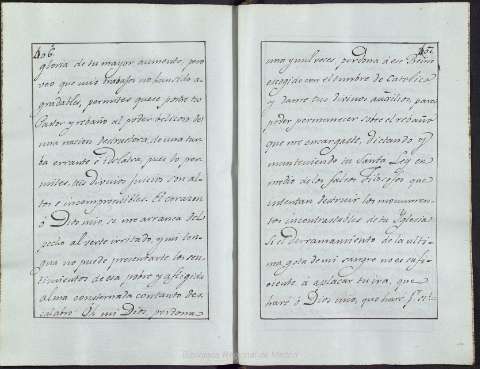 406
gloria de tu mayor aumento, pero
veo que mis trabajos no han sido a-
gradables, permites que se postre tu
Pastor y rebaño al poder belicoso de
una nacion destructora, de una tur-
ba errante e idolatra, pues lo per-
mites, tus divinos juicios son al-
tos e incomprensibles. El corazon
ó Dios mio, se me arranca del
pecho al verte irritado, y mi len-
gua no puede presentarte los sen-
timientos de esa pobre y afligida
alma consternada con tanto des-
calabro. Oh mi Dios, perdona
407
una y mil veces, perdona a ese Reino
erigido con el timbre de Catolica
y dame tus divinos auxilios, para
poder permanecer sobre el rebaño
que me encargaste, dictando y
manteniendo tu Santa Ley en
medio de los falsos Filosofos que
intentan destruir los monumen-
tos incontrastables de tu Yglesia.
Si el derramamiento de la ulti-
ma gota de mi sangre no es sufi-
ciente a aplacar tu ira, que
haré ó Dios mio, que haré? si el
Biblioteca Regional de Madrid